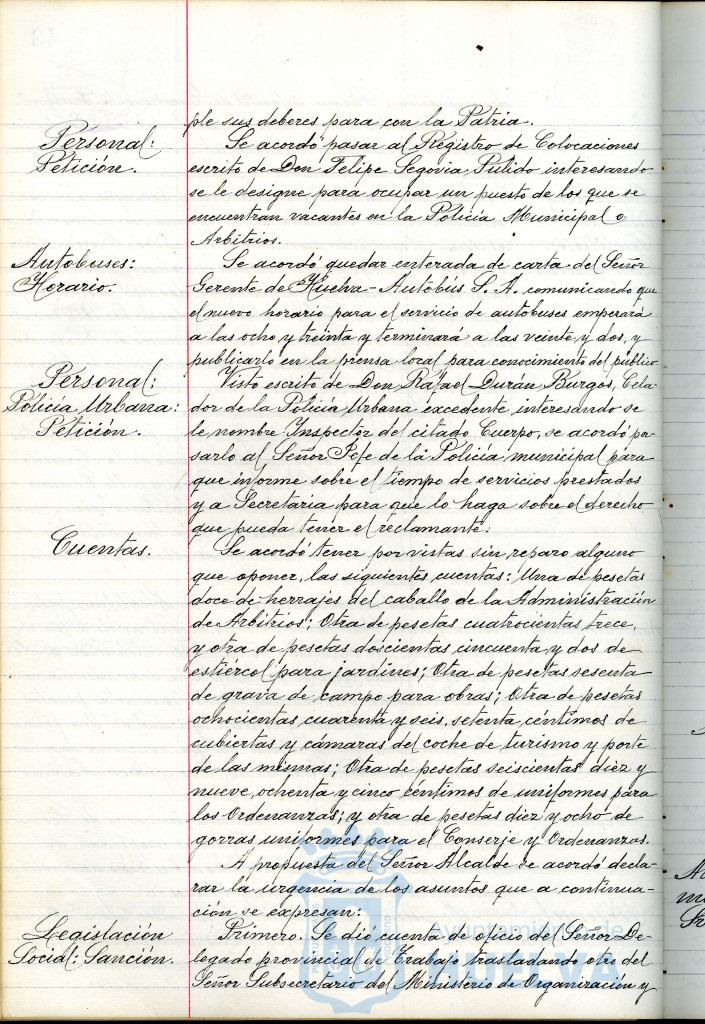 ple sus deberes para con la Patria.
Personal:
Petición.
Se acordó pasar al Registro de Colocaciones
escrito de Don Felipe Segovia Pulido interesando
se le designe para ocupar un puesto de los que se
encuentran vacantes en la Policía Municipal o
Arbitrios.
Autobuses:
Horario.
Se acordó quedar enterada de carta del Señor
Gerente de Huelva-Autobús S. A. comunicando que
el nuevo horario para el servicio de autobuses empezará
a las ocho y treinta y terminará a las veinte y dos, y
publicarlo en la prensa local para conocimiento del público.
Personal:
Policía Urbana:
Petición.
Visto escrito de Don Rafael Durán Burgos, Cela-
dor de la Policía Urbana excedente interesando se
le nombre Inspector del citado Cuerpo, se acordó pa-
sarlo al Señor Jefe de la Policía municipal para
que informe sobre el tiempo de servicios prestados
y a Secretaría para que lo haga sobre el derecho
que pueda tener el reclamante.
Cuentas.
Se acordó tener por vistas sin reparo alguno
que oponer, las siguientes cuentas: Una de pesetas
doce de herrajes del caballo de la Administración
de Arbitrios; Otra de pesetas cuatrocientas trece,
y otra de pesetas doscientas cincuenta y dos de
estiércol para jardines; Otra de pesetas sesenta
de grava de campo para obras; Otra de pesetas
ochocientas cuarenta y seis, setenta céntimos de
cubiertas y cámaras del coche de turismo y porte
de las mismas; Otra de pesetas seiscientas diez y
nueve, ochenta y cinco céntimos de uniformes para
los Ordenanzas; y otra de pesetas diez y ocho de
gorras uniformes para el Conserje y Ordenanzas.
A propuesta del Señor Alcalde se acordó decla-
rar la urgencia de los asuntos que a continua-
ción se expresan:
Legislación
Social: Sanción.
Primero. Se dió cuenta de oficio del Señor De-
legado provincial de Trabajo trasladando otro del
Señor Subsecretario del Ministerio de Organización y
Ayuntamiento de
HUELVA